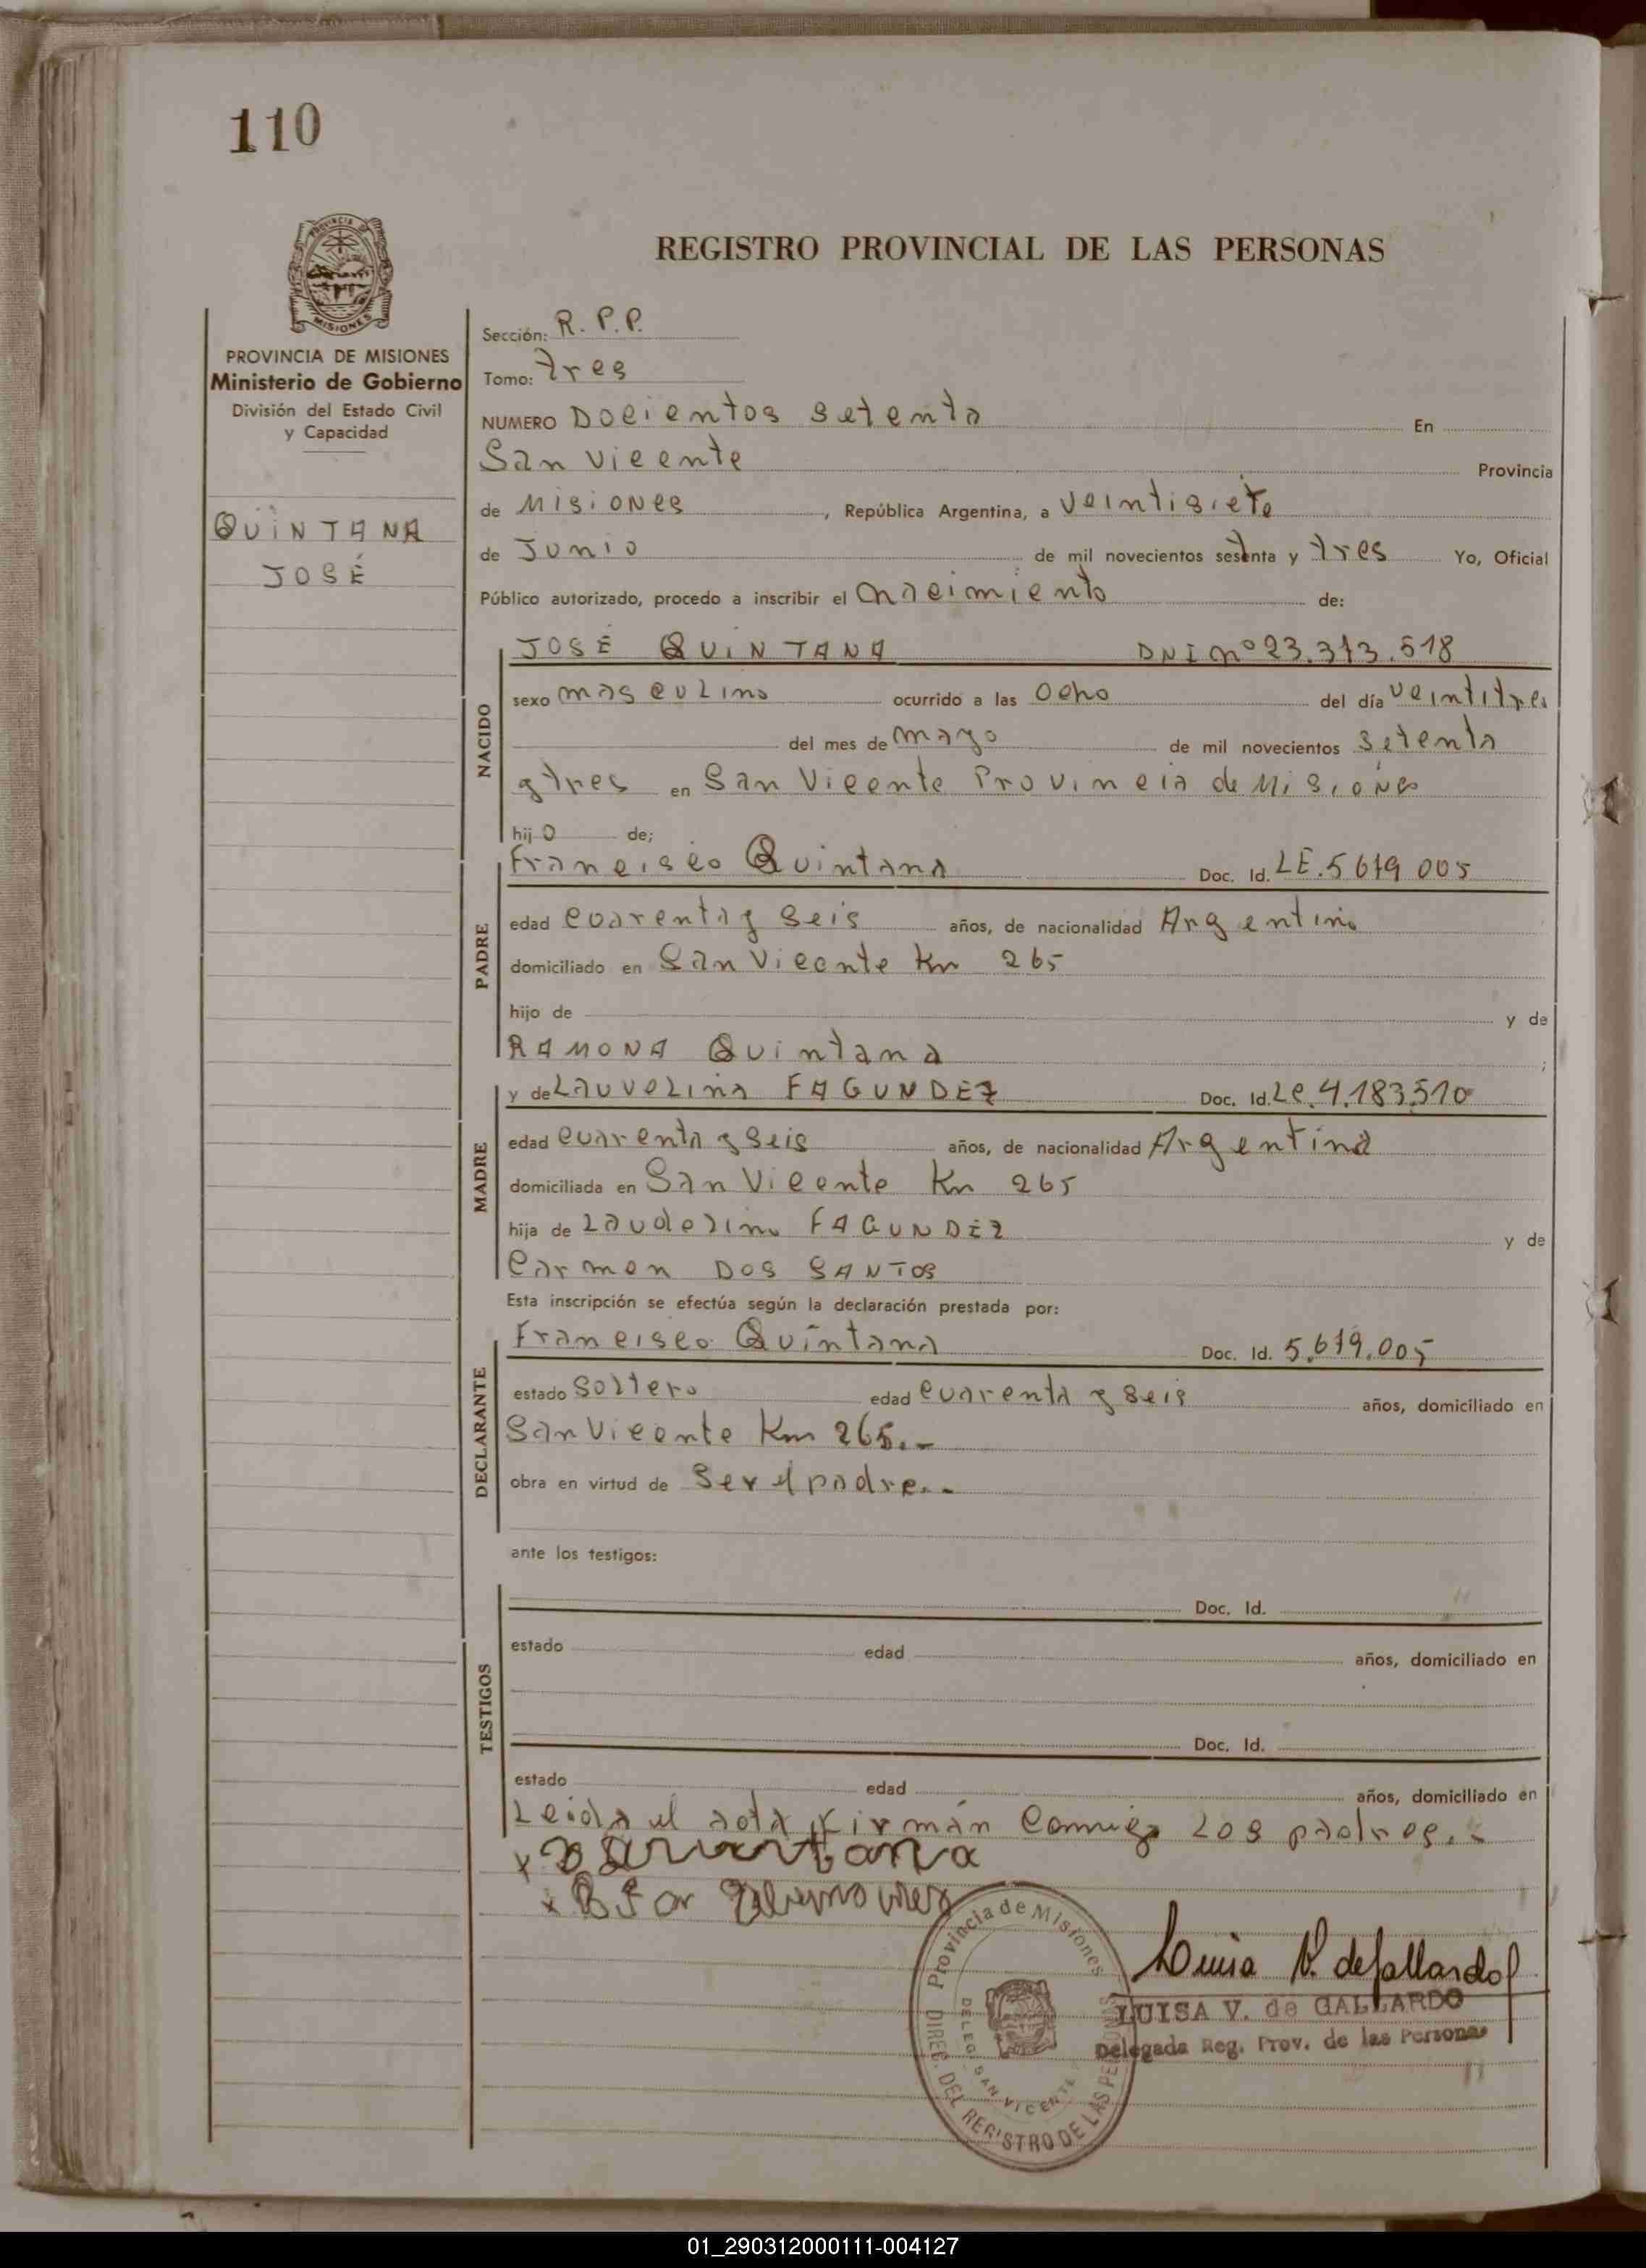 110
PROVINCIA DE MISIONES
REGISTRO PROVINCIAL DE LAS PERSONAS
PROVINCIA DE MISIONES
Ministerio de Gobierno
División del Estado Civil
y Capacidad
QUINTANA
JOSÉ
Sección: R. P. P.
Tomo: tres
NUMERO Docientos setenta En
San Vicente Provincia
de Misiones, República Argentina, a veintisiete
de Junio de mil novecientos setenta y tres Yo, Oficial
Público autorizado, procedo a inscribir el nacimiento de:
NACIDO
JOSÉ QUINTANA DNI nº 23.373.518
sexo masculino ocurrido a las ocho del día veintitres
del mes de mayo de mil novecientos setenta
y tres en San Vicente Provincia de Misiones
hijo de;
PADRE
Francisco Quintana Doc. Id. LE. 5 679 005
edad cuarenta y seis años, de nacionalidad Argentino
domiciliado en San Vicente Km 265
hijo de y de
RAMONA Quintana ;
MADRE
y de Lauvelina FAGUNDEZ Doc. Id. Lc. 4.183.510
edad cuarenta y seis años, de nacionalidad Argentina
domiciliada en San Vicente Km 265
hija de Laudelino FAGUNDEZ y de
Carmen DOS SANTOS
Esta inscripción se efectúa según la declaración prestada por:
DECLARANTE
Francisco Quintana Doc. Id. 5.679.005
estado soltero edad cuarenta y seis años, domiciliado en
San Vicente Km 265.-
obra en virtud de ser el padre.-
ante los testigos:
TESTIGOS
Doc. Id.
estado edad años, domiciliado en
Doc. Id.
estado edad años, domiciliado en
Leida el acta, firmán conmigo los padres.-
Luisa V. de Gallardo
LUISA V. de GALLARDO
Delegada Reg. Prov. de las Personas
Provincia de Misiones
DIREC. DEL REGISTRO DE LAS PERSONAS
DELEG. SAN VICENTE
01_290312000111-004127